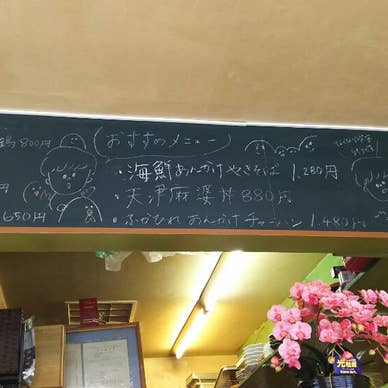 鶏 800円
650円
おすすめメニュー
・海鮮あんかけやきそば 1.280円
・天津麻婆丼 880円
・ふかひれあんかけチャーハン 1.480円